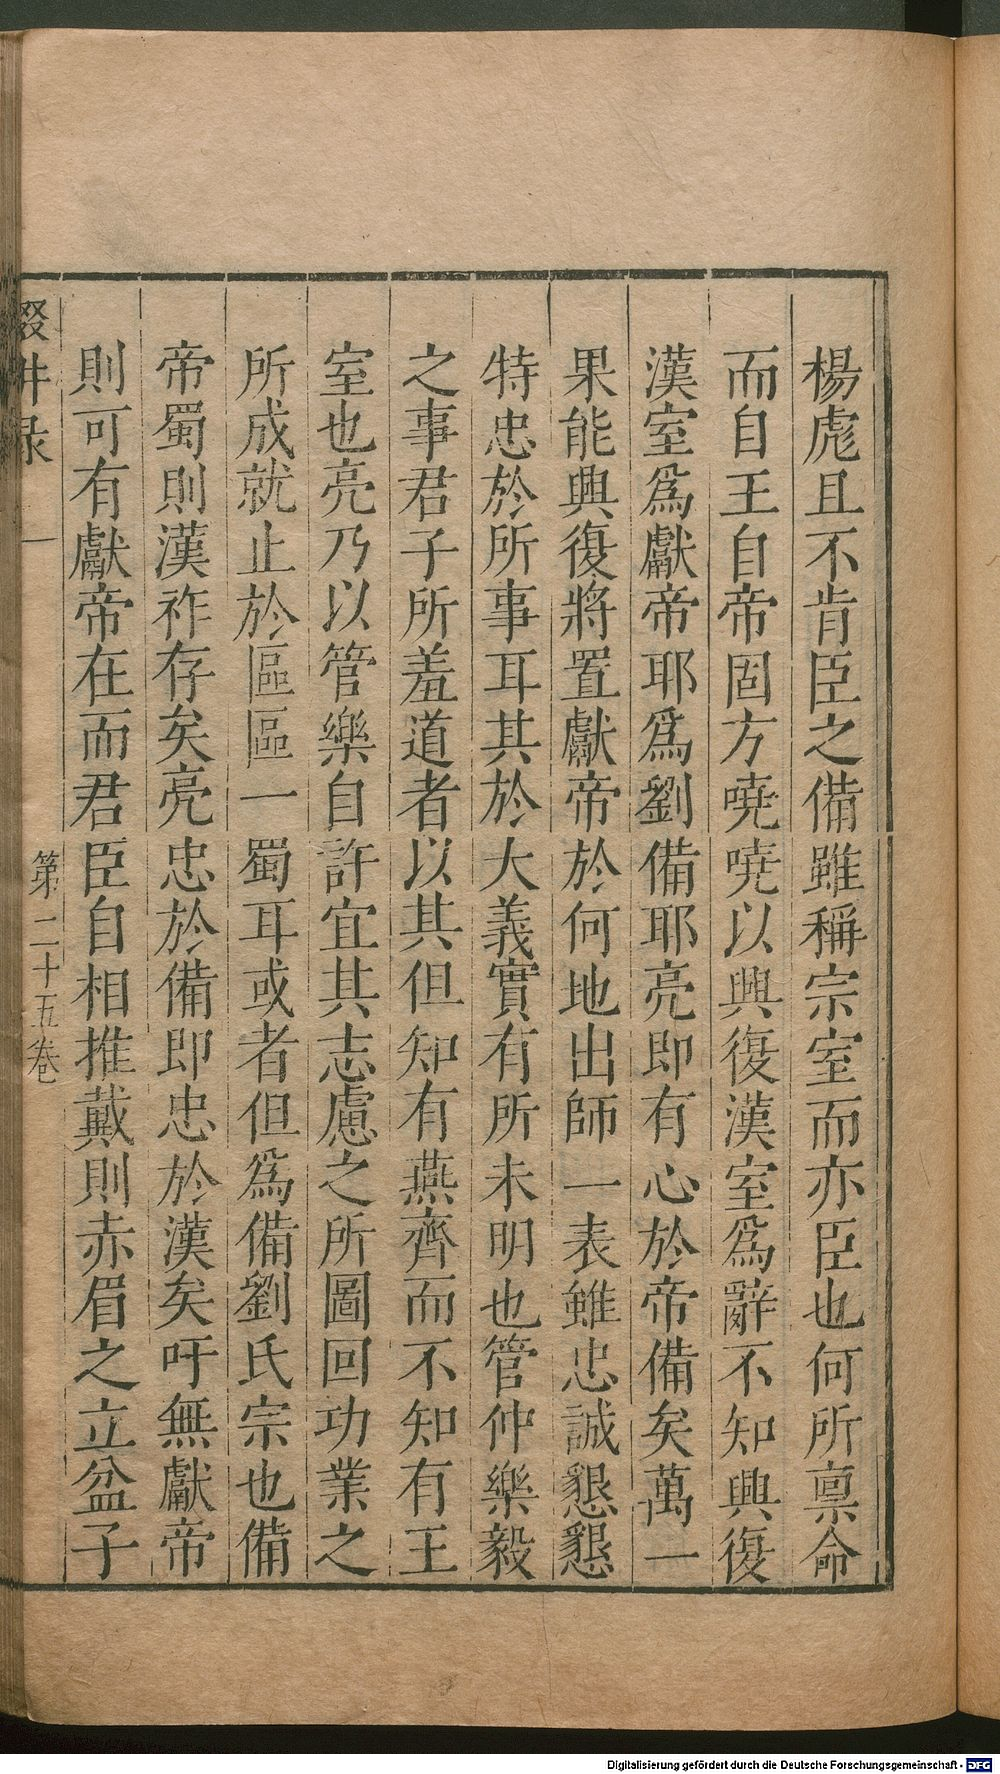 楊彪且不肯臣之備雖稱宗室而亦臣也何所禀命
而自王自帝固方嘵嘵以興復漢室爲辭不知興復
漢室爲獻帝耶爲劉備耶亮即有心於帝備矣萬一
果能興復將置獻帝於何地出師一表雖忠誠懇懇
特忠於所事耳其於大義實有所未明也管仲樂毅
之事君子所羞道者以其但知有燕齊而不知有王
室也亮乃以管樂自許宜其志慮之所圖回功業之
所成就止於區區一蜀耳或者但爲備劉氏宗也備
帝蜀則漢祚存矣亮忠於備即忠於漢矣吁無獻帝
則可有獻帝在而君臣自相推戴則赤眉之立盆子
第二十五卷
Digitalisierung gefördert durch die Deutsche Forschungsgemeinschaft - DFG